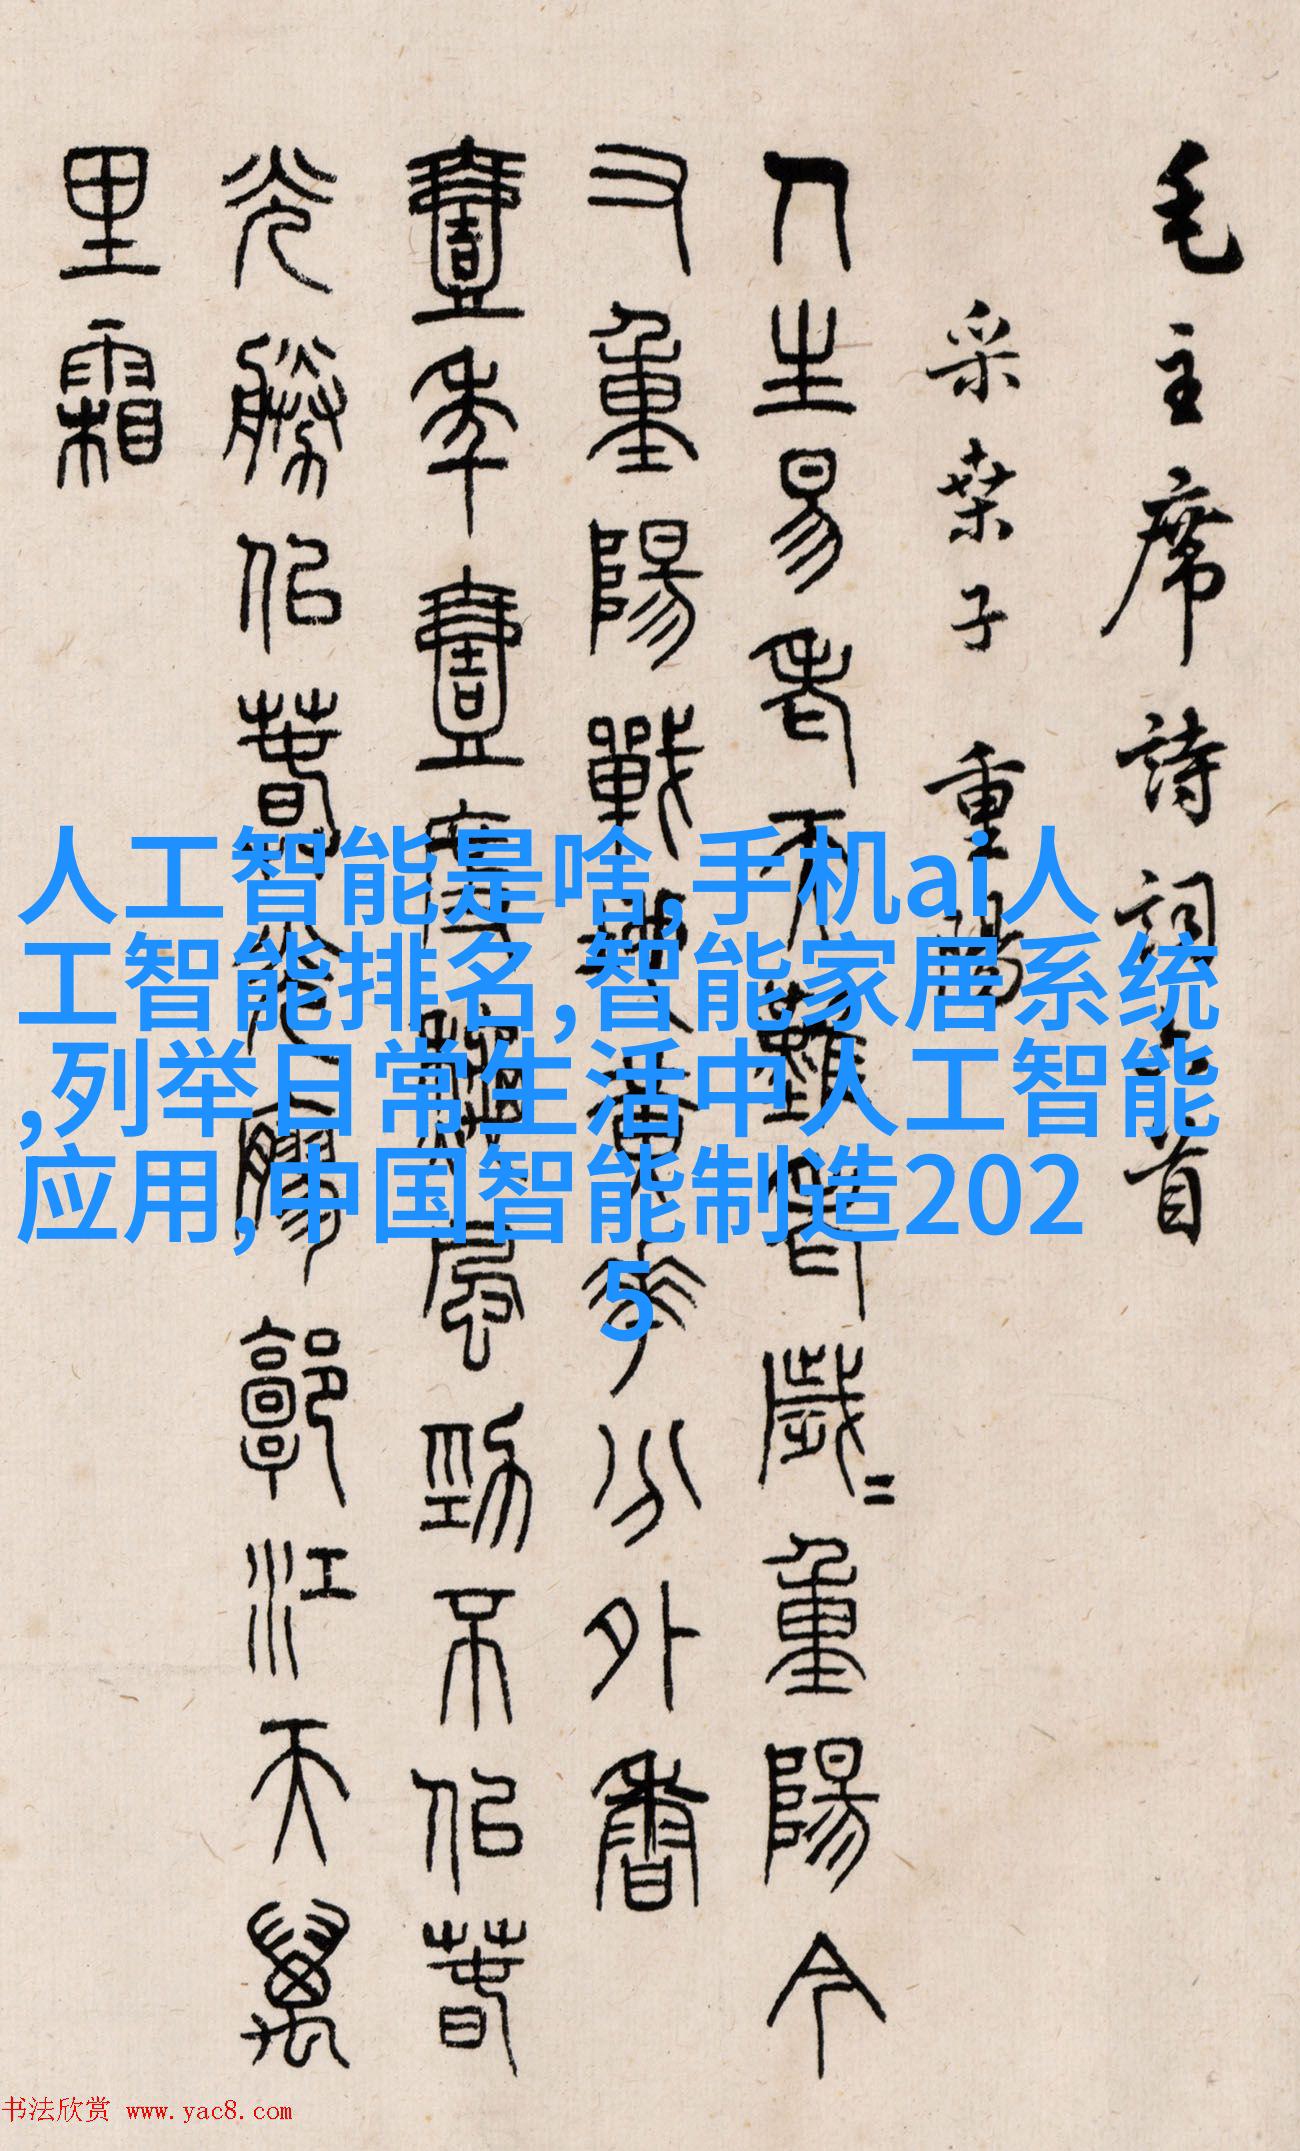 毛主席詩詞首
采桑子 重陽
人生易老天難老歲=重陽今
又重陽戰地黃華分外香
壹年壹度秋風勁不似春
光勝似春光郭江天萬
里霜
人工智能是啥,手机ai人
工智能排名,智能家居系统
,列举日常生活中人工智能
应用,中国智能制造202
5
书法欣赏 www.yac8.com